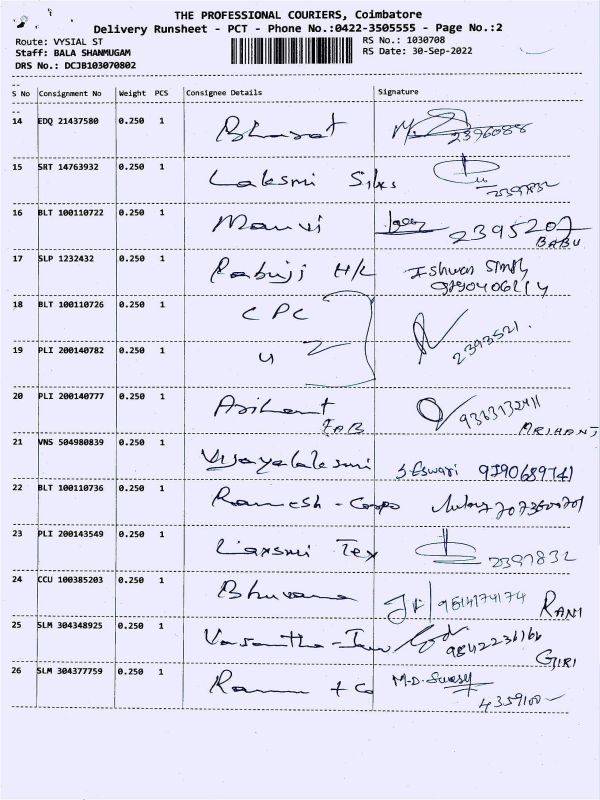 THE PROFESSIONAL COURIERS, Coimbatore
Delivery Runsheet - PCT - Phone No.:0422-3505555 - Page No.:2
Route: VYSIAL ST RS No.: 1030708
Staff: BALA SHANMUGAM RS Date: 30-Sep-2022
DRS No.: DCJB103070802
S No Consignment No Weight PCS Consignee Details Signature
14 EDQ 21437580 0.250 1 Bharat 2396088
15 SRT 14763932 0.250 1 Laksmi Silks 2397832
16 BLT 100110722 0.250 1 Manvi 2395207
BABU
17 SLP 1232432 0.250 1 H/L Ishwar Singh
18 BLT 100110726 0.250 1 CPC
19 PLI 200140782 0.250 1 2393521
20 PLI 200140777 0.250 1 Arihant 9363132411
FAB ARIHANT
21 VNS 504980839 0.250 1 Vijayalaksmi S. Eswari 9790689741
22 BLT 100110736 0.250 1 Ramesh - 
23 PLI 200143549 0.250 1 Laxsmi Tex 2397832
24 CCU 100385203 0.250 1 Bhuvana 9514174174 RANI
25 SLM 304348925 0.250 1 Vasantha-
GIRI
26 SLM 304377759 0.250 1 + Co M.D.
4359100